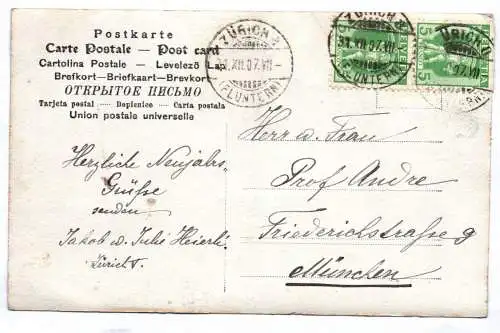 Postkarte
Carte Postale — Post card
Cartolina Postale — Levelező Lap
Brefkort—Briefkaart—Brevkort
ОТКРЫТОЕ ПИСЬМО
Tarjeta postal — Dopisnice — Carta postala
Union postale universelle
ZÜRICH
31.XII.07.VII
(FLUNTERN)
ZÜRICH
31.XII.07.VII
FLUNTERN
HELVETIA
5
5
Herzliche Neujahrs-
Grüsse
senden
Jakob u. Julie Heierli
Zürich V.
Herr u. Frau
Prof Andre
Friederichstrasse 9
München